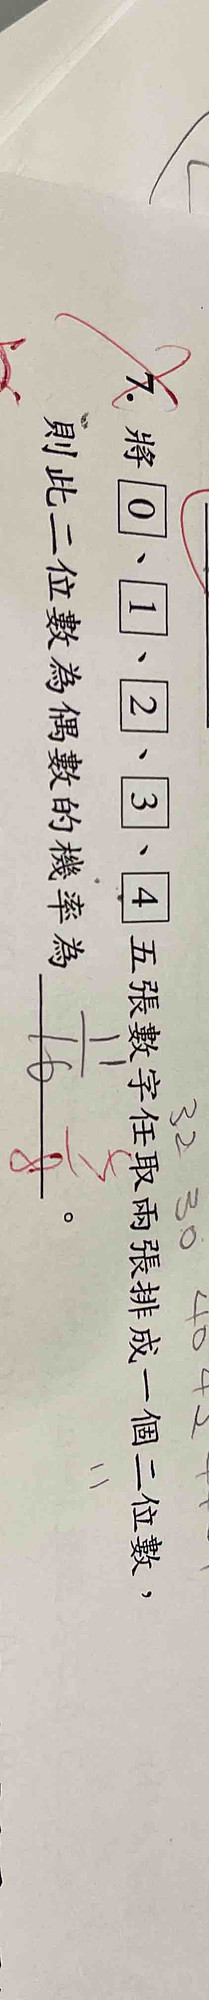 32 30 40 42
7. 將 0、1、2、3、4 五張數字任取兩張排成一個二位數，
則此二位數為偶數的機率為 11/16 。
5/8
11